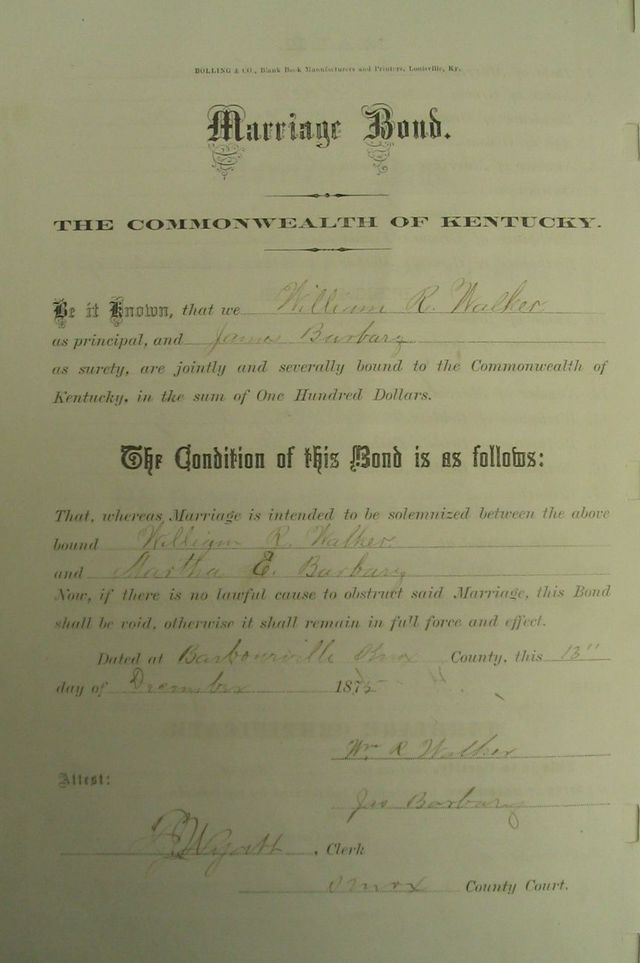 BOLLING & CO., Blank Book Manufacturers and Printers, Louisville, Ky.
Marriage Bond.
THE COMMONWEALTH OF KENTUCKY.
Be it Known, that we William R. Walker
as principal, and James Barbary
as surety, are jointly and severally bound to the Commonwealth of
Kentucky, in the sum of One Hundred Dollars.
The Condition of this Bond is as follows:
That, whereas Marriage is intended to be solemnized between the above
bound William R. Walker
and Martha E. Barbary
Now, if there is no lawful cause to obstruct said Marriage, this Bond
shall be void, otherwise it shall remain in full force and effect.
Dated at Barbourville Knox County, this 13"
day of December 1875
Wm R Walker
Attest:
Jas Barbary
Wyatt, Clerk
Knox County Court.